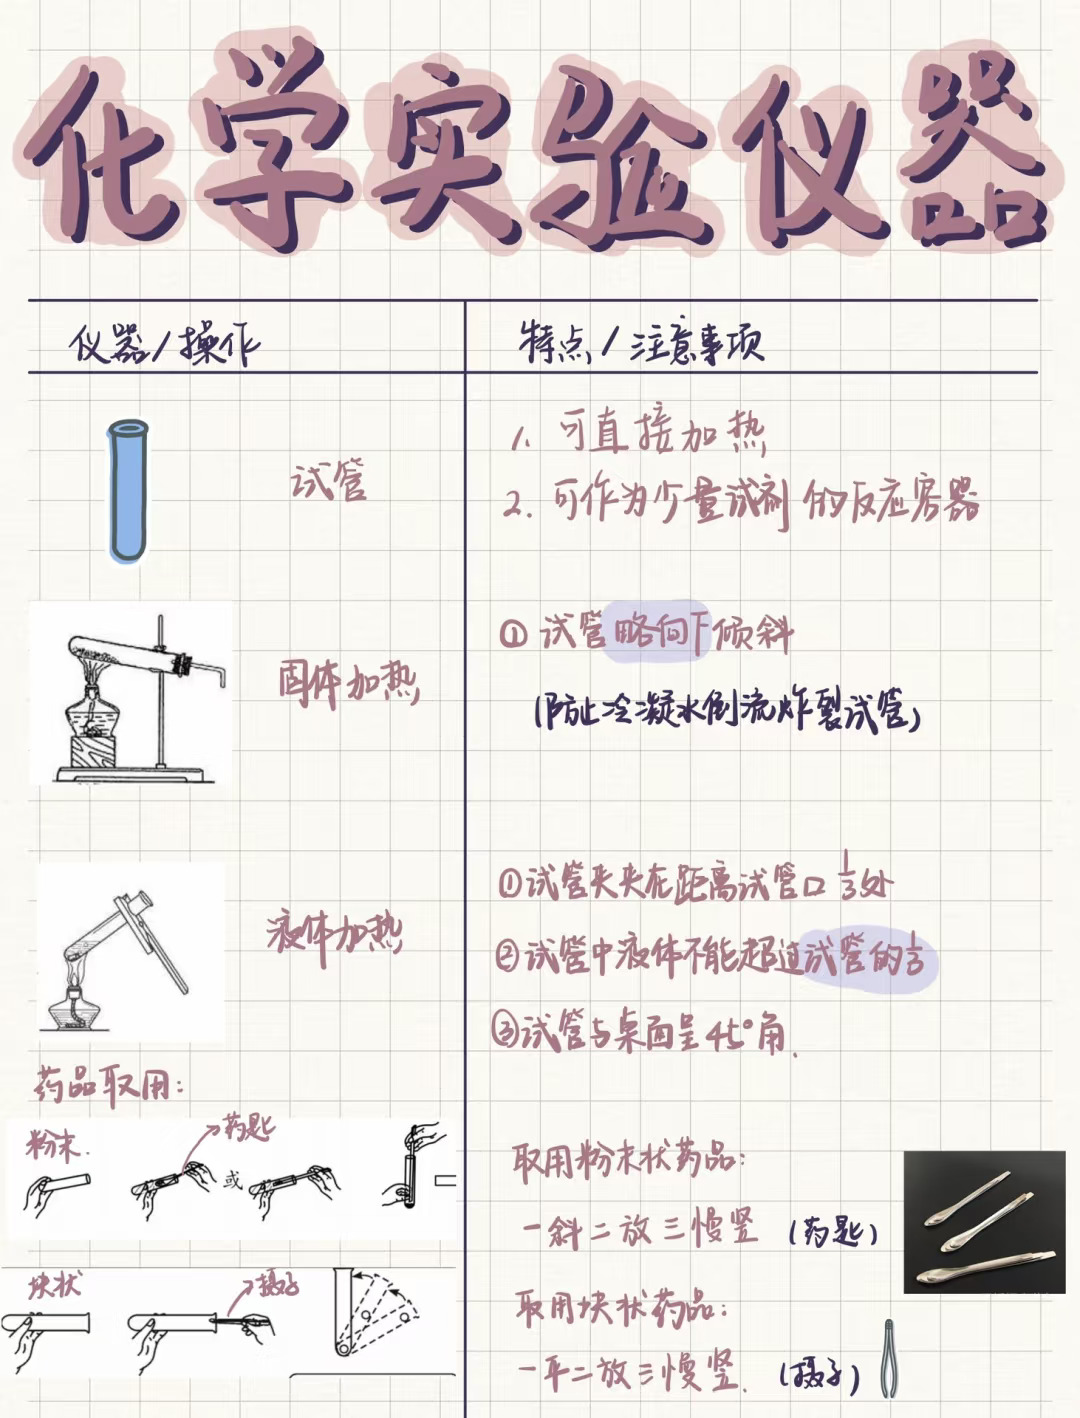 化学实验仪器
仪器/操作
特点/注意事项
试管
1. 可直接加热
2. 可作为少量试剂的反应容器
固体加热
① 试管略向下倾斜
(防止冷凝水倒流炸裂试管)
液体加热
①试管夹夹在距离试管口1/3处
②试管中液体不能超过试管的1/3
③试管与桌面呈45°角.
药品取用:
粉末.
药匙
或
取用粉末状药品:
一斜二放三慢竖 (药匙)
块状
镊子
取用块状药品:
一平二放三慢竖. (镊子)